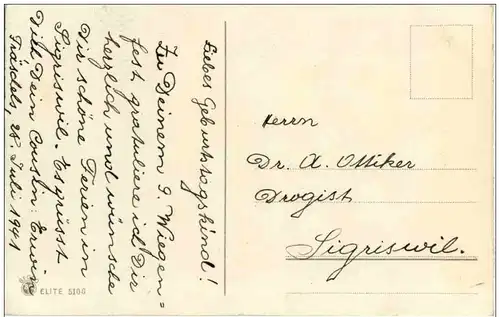 Liebes Geburtstagskind!
Zu Deinem 9. Wiegen=
fest gratuliere ich Dir
herzlich und wünsche
Dir schöne Ferien in
Sigriswil. Es grüsst
Dich Dein Cousin: Erwin
Träschels, 28. Juli 1941
Herrn
Dr. A. Ottiker
Drogist
Sigriswil.
ELITE 5106